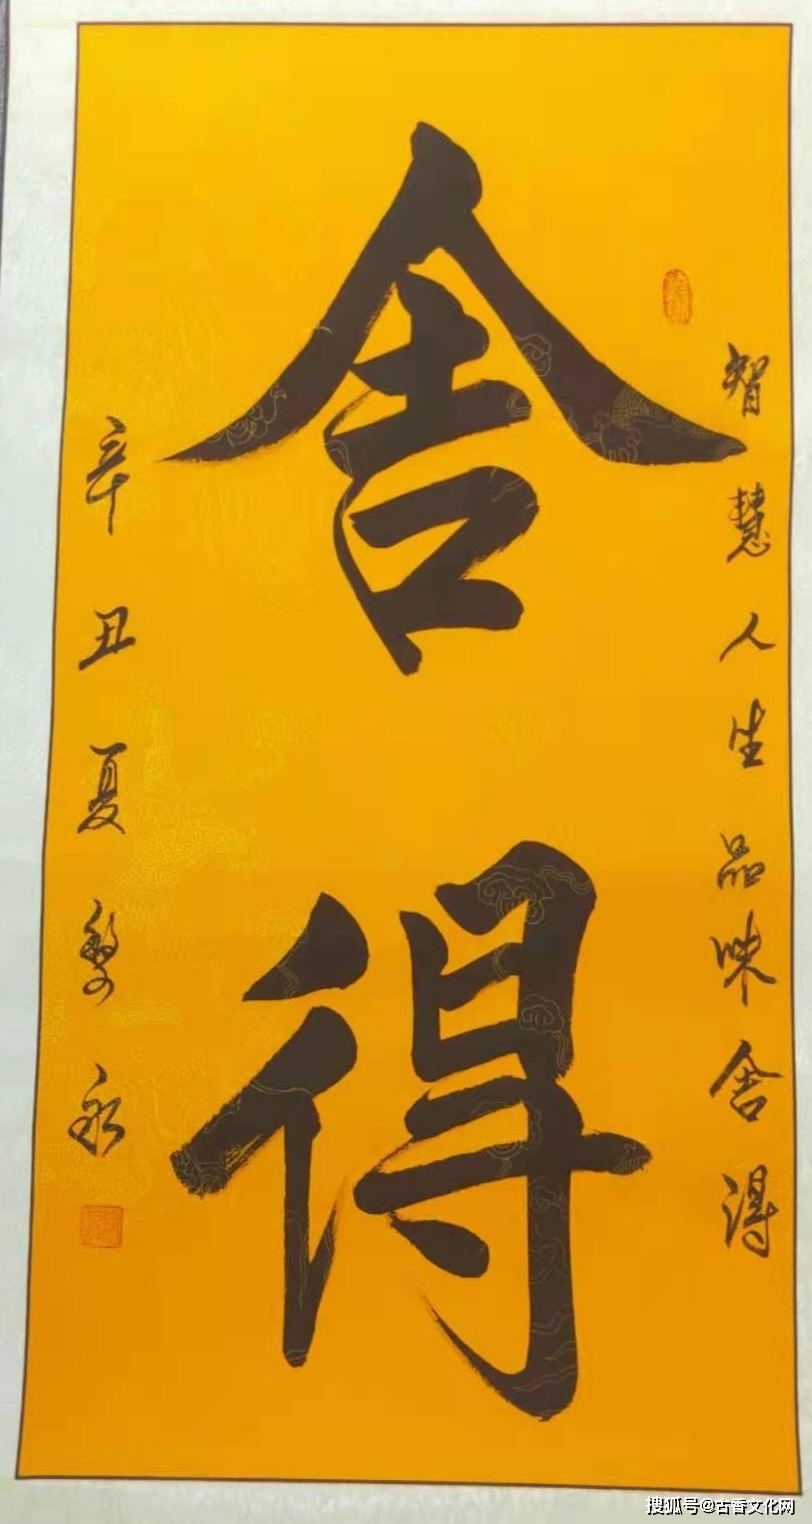 智慧人生品味舍得
舍得
辛丑夏 永
搜狐号@古香文化网